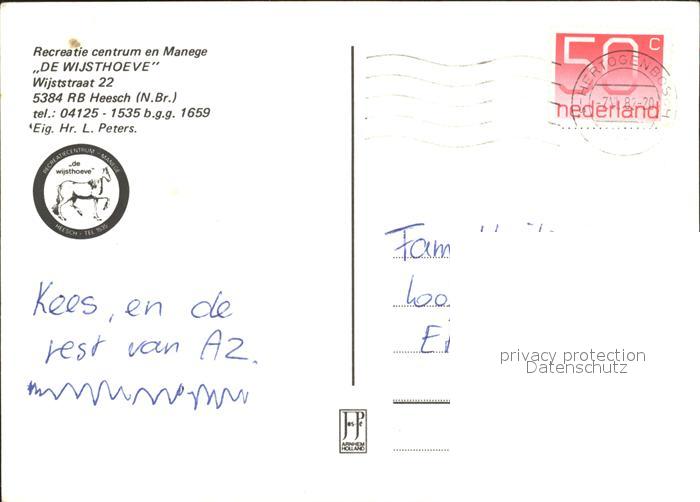 Recreatie centrum en Manege
„DE WIJSTHOEVE”
Wijststraat 22
5384 RB Heesch (N.Br.)
tel.: 04125 - 1535 b.g.g. 1659
Eig. Hr. L. Peters.
RECREATIECENTRUM - MANEGE
„de
wijsthoeve”
HEESCH - TEL 1535
Kees, en de
rest van A2.
50 c
nederland
'S-HERTOGENBOSCH
Fam
privacy protection
Datenschutz
Jos-Pé
ARNHEM
HOLLAND